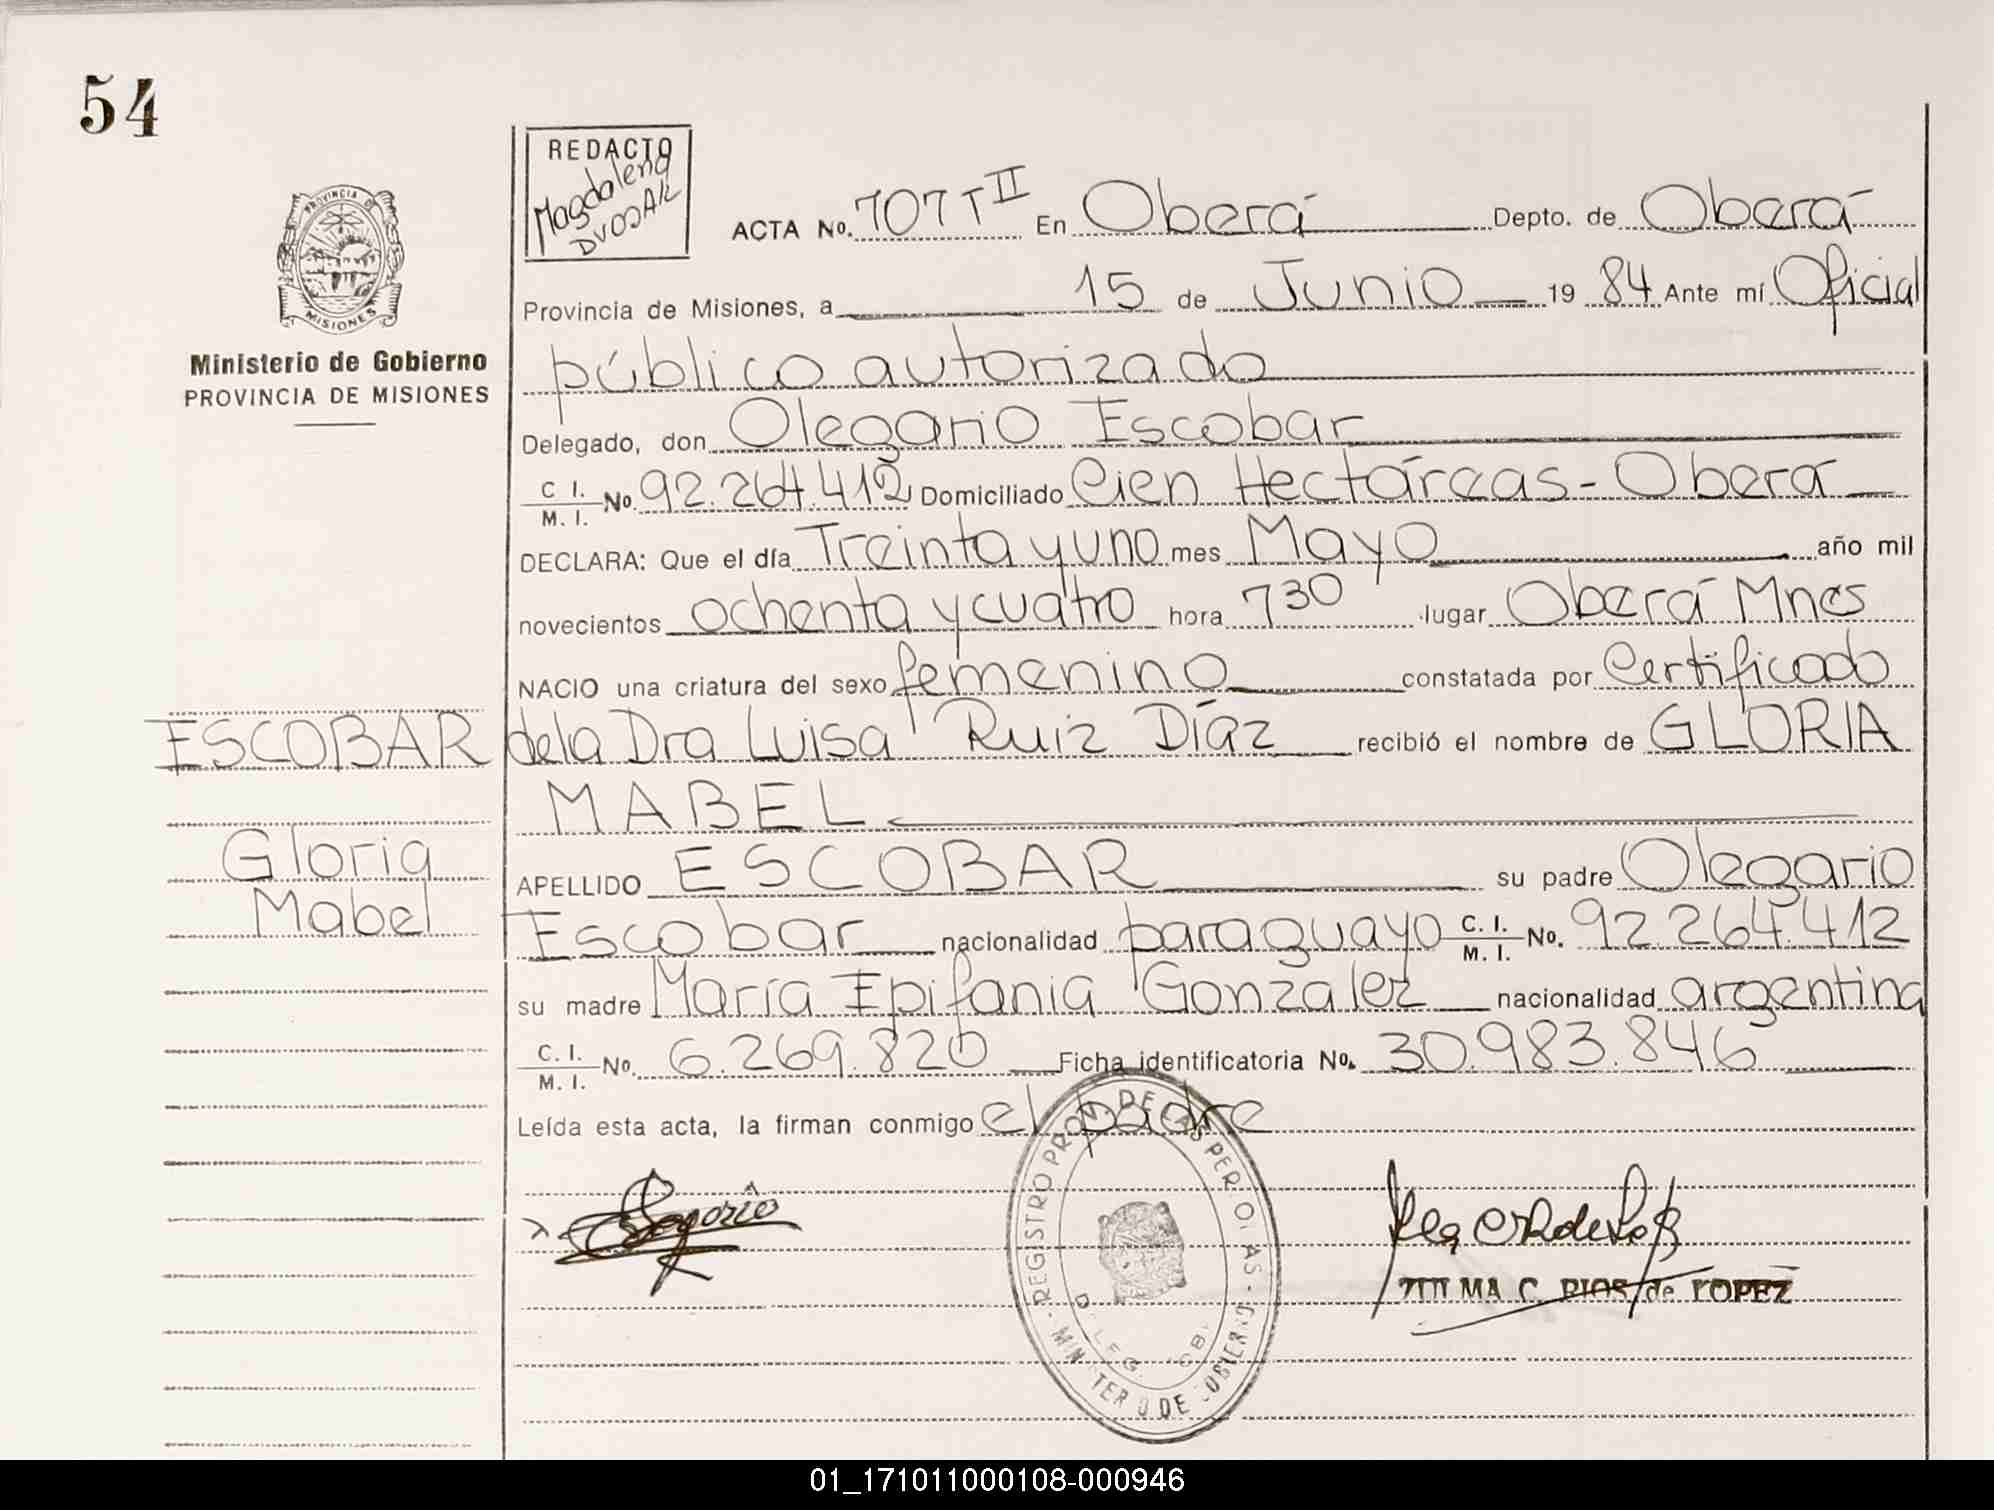 54
REDACTO
Magdalena
ACTA No. 707 T II En Oberá Depto. de Oberá
PROVINCIA DE
MISIONES
Provincia de Misiones, a 15 de Junio 19 84 Ante mí Oficial
Ministerio de Gobierno
PROVINCIA DE MISIONES
público autorizado
Delegado, don Olegario Escobar
C. I. M. I. No. 92.264.412 Domiciliado Cien Hectáreas - Oberá
DECLARA: Que el día Treinta y uno mes Mayo año mil
novecientos ochenta y cuatro hora 730 lugar Oberá Mnes
NACIO una criatura del sexo femenino constatada por Certificado
ESCOBAR
de la Dra Luisa Ruiz Díaz recibió el nombre de GLORIA
MABEL
Gloria
Mabel
APELLIDO ESCOBAR su padre Olegario
Escobar nacionalidad paraguayo C. I. M. I. No. 92.264.412
su madre María Epifania Gonzalez nacionalidad argentina
C. I. M. I. No. 6.269.820 Ficha identificatoria No. 30.983.846
Leída esta acta, la firman conmigo el padre
REGISTRO PROV. DE LAS PER
MIN TER O DE OBIERNO
MA C. RIOS de LOPEZ
01_171011000108-000946